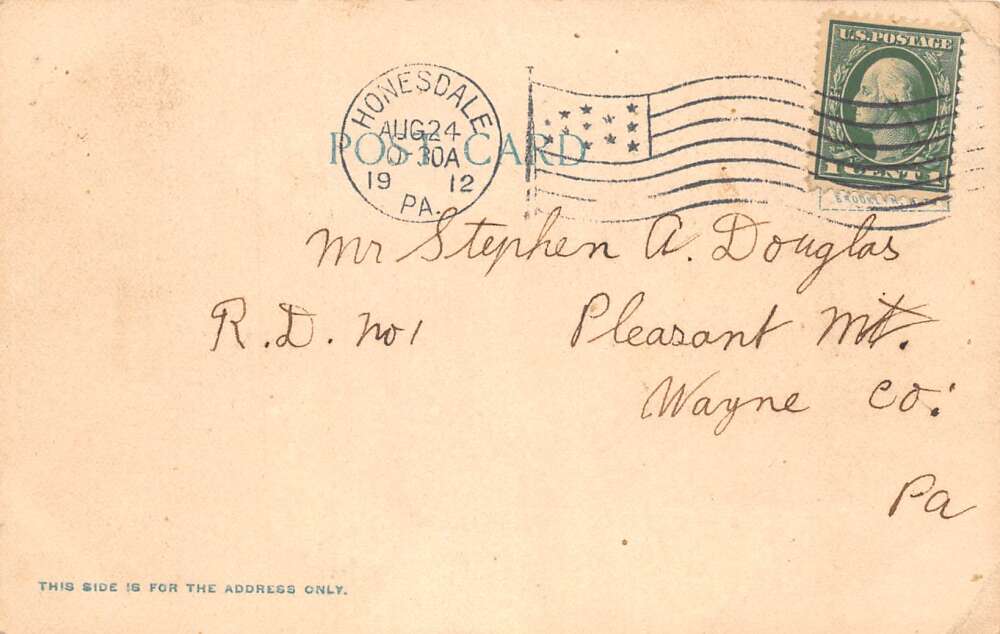 U.S. POSTAGE
HONESDALE
AUG 24
30A
19 12
PA.
POST CARD
1 CENT 1
BROOKLYN
Mr Stephen A. Douglas
R.D. No 1 Pleasant Mt.
Wayne Co.
Pa
THIS SIDE IS FOR THE ADDRESS ONLY.